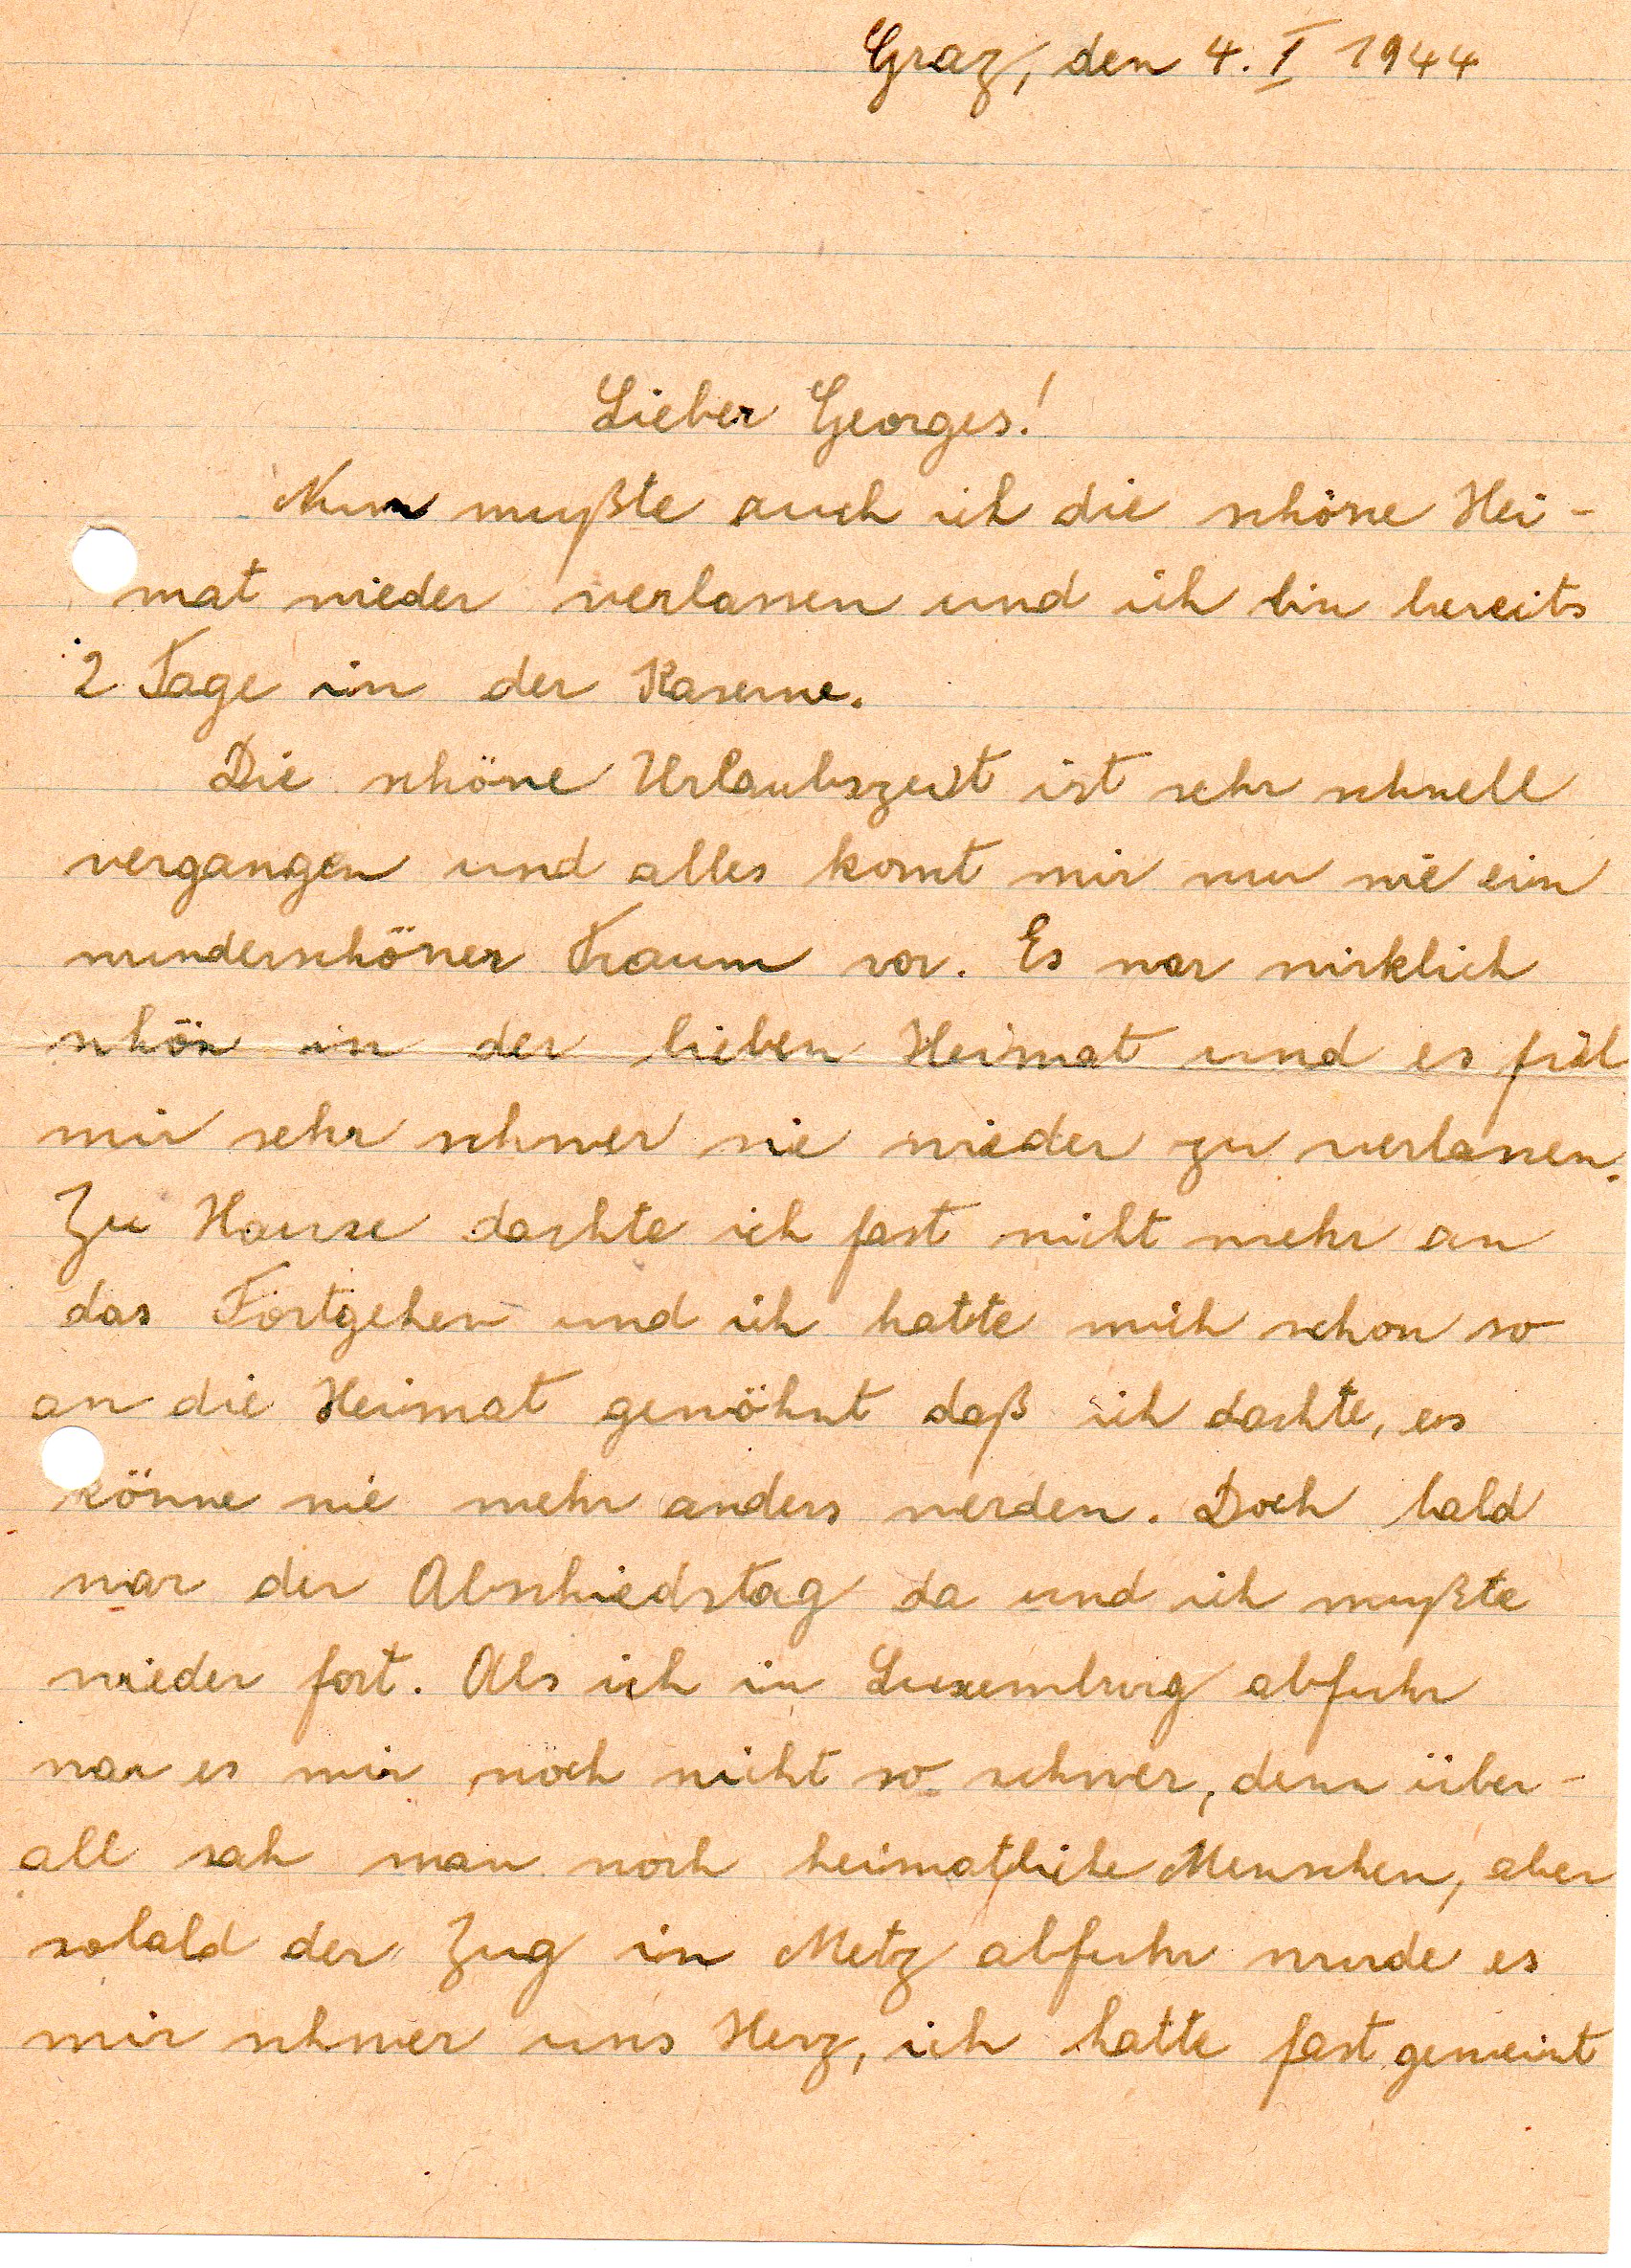 Graz, den 4. I 1944
Lieber Georges!
Nun mußte auch ich die schöne Hei-
mat wieder verlassen und ich bin bereits
2 Tage in der Kaserne.
Die schöne Urlaubszeit ist sehr schnell
vergangen und alles komt mir nur wie ein
wunderschöner Traum vor. Es war wirklich
schön in der lieben Heimat und es fiel
mir sehr schwer sie wieder zu verlassen.
Zu Hause dachte ich fast nicht mehr an
das Fortgehen und ich hatte mich schon so
an die Heimat gewöhnt daß ich dachte, es
könne nie mehr anders werden. Doch bald
war der Abschiedstag da und ich mußte
wieder fort. Als ich in Luxemburg abfuhr
war es mir noch nicht so schwer, denn über-
all sah man noch heimatliche Menschen, aber
sobald der Zug in Metz abfuhr wurde es
mir schwer ums Herz, ich hatte fast geweint